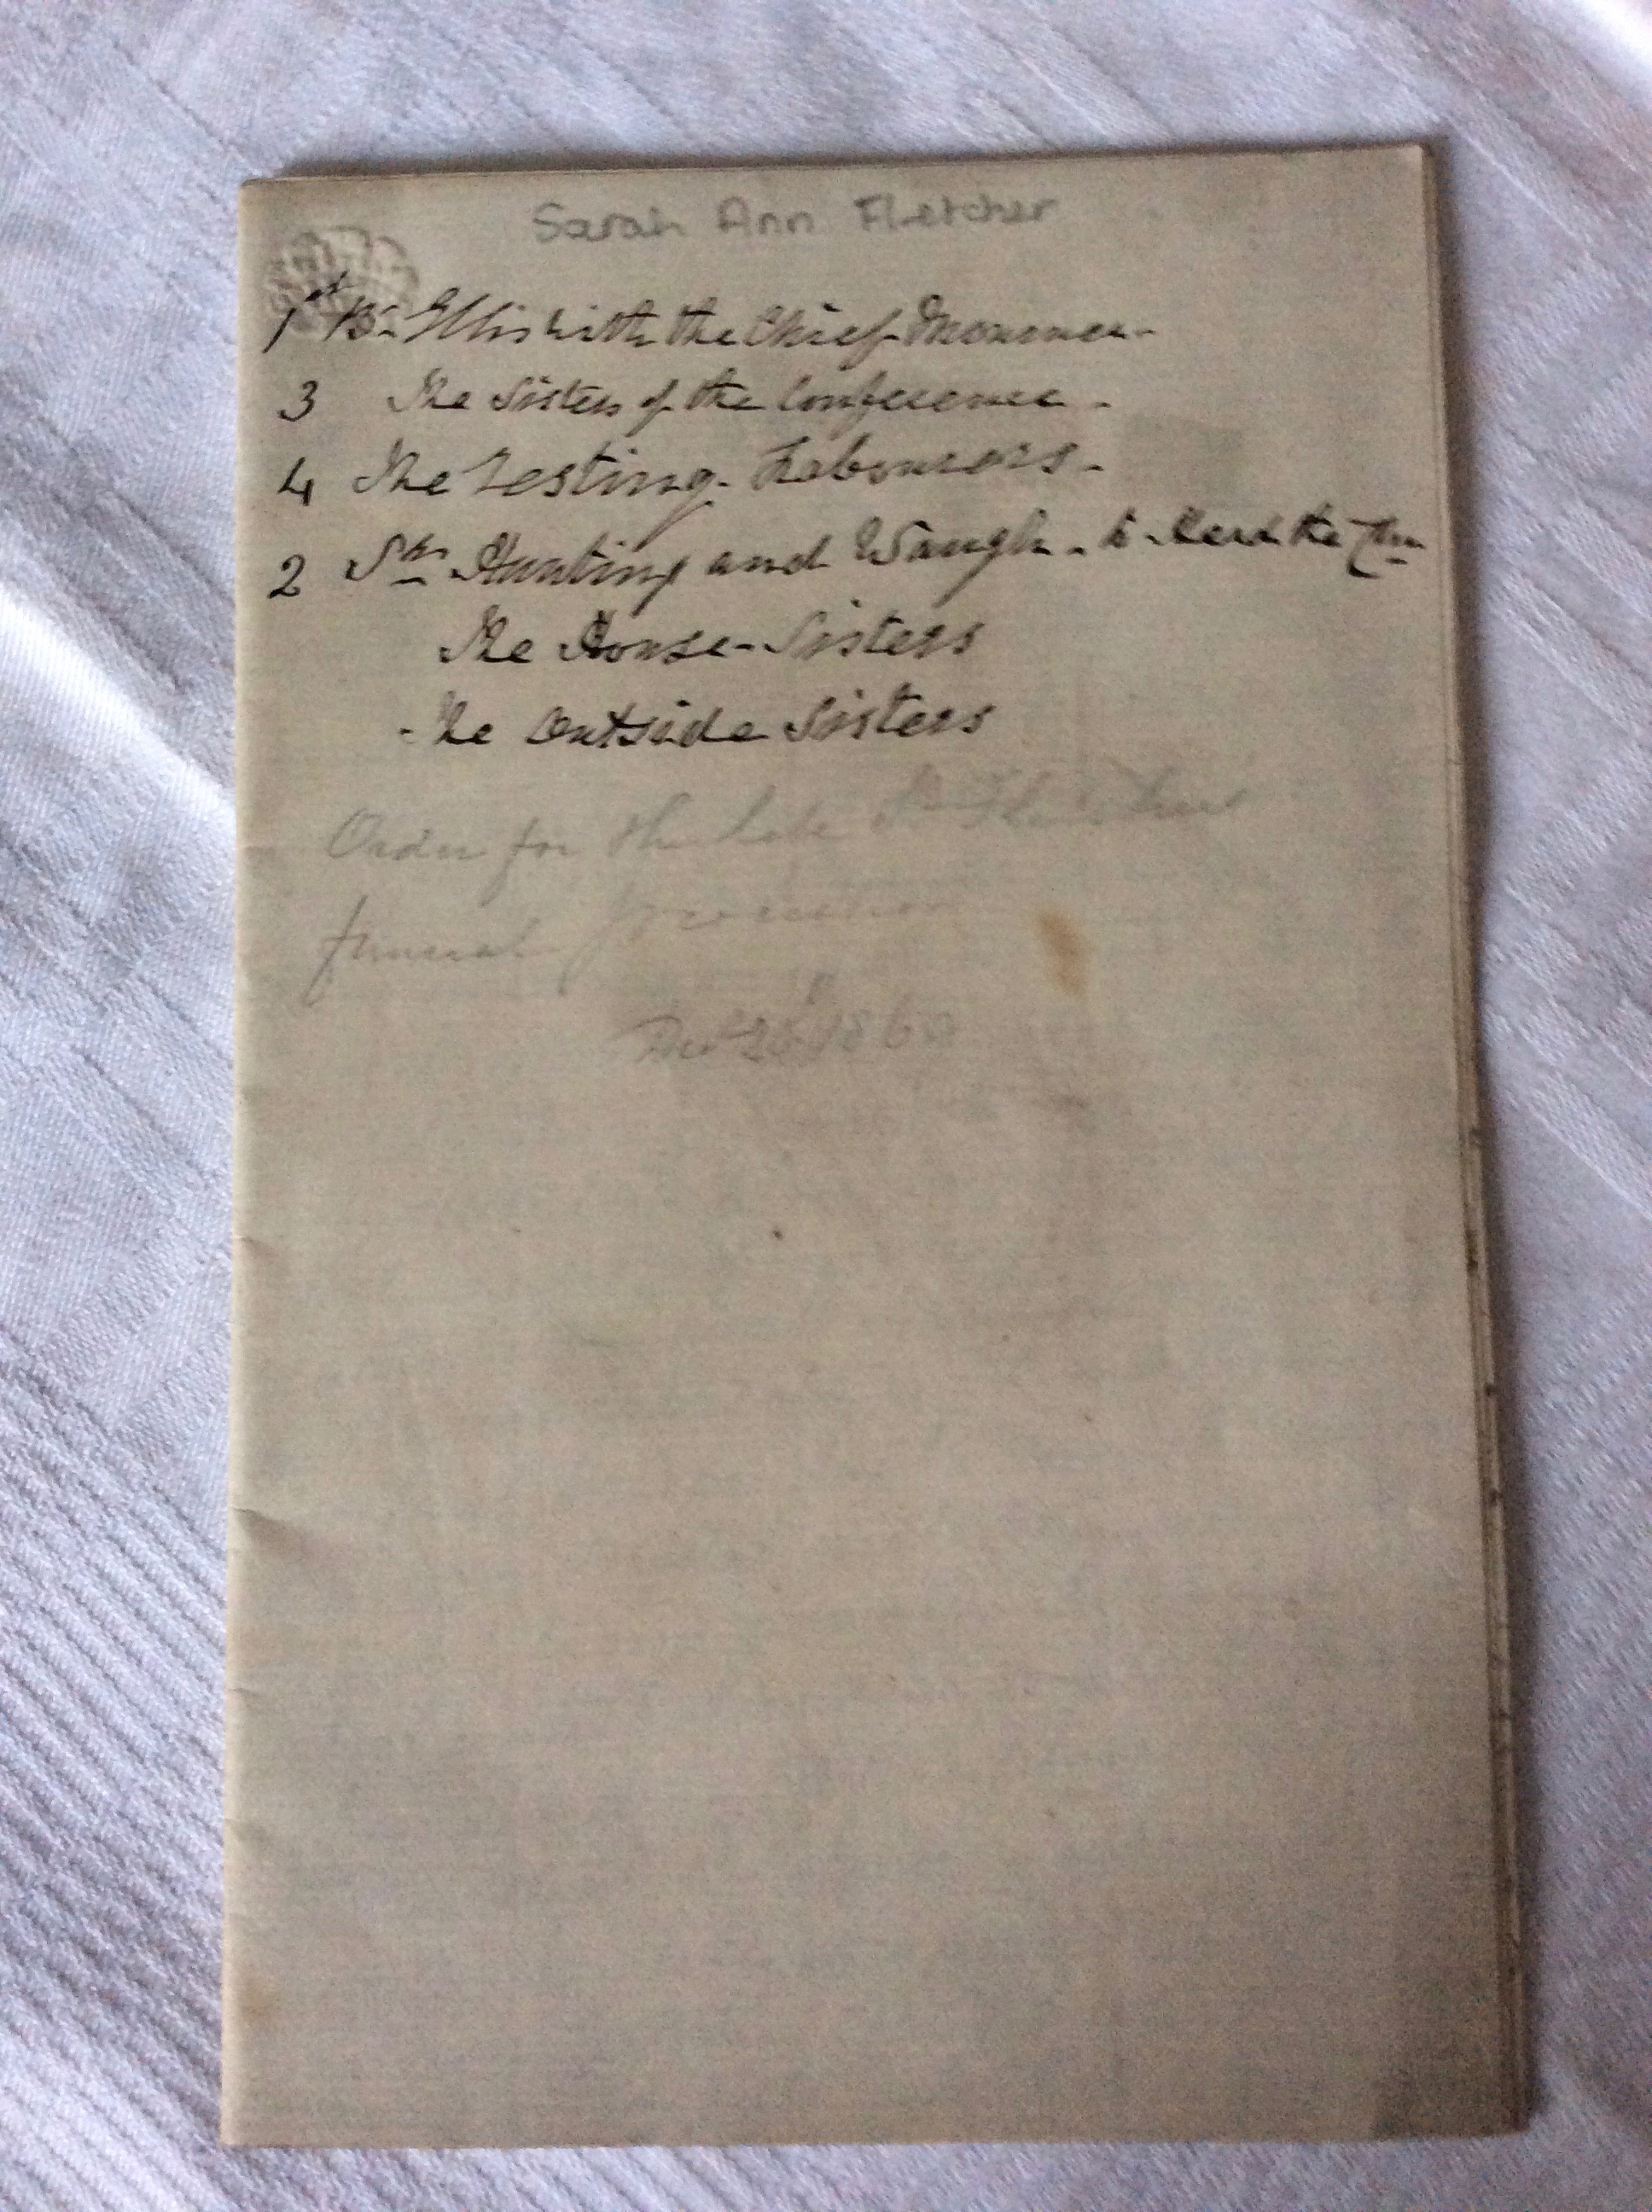 Sarah Ann Fletcher
1st Br Ellis with the Chief Mourner -
3 The Sisters of the Conference -
4 The Resting Labourers -
2 Srs Hunting and Waugh - to head the
The House-Sisters
The Outside Sisters
Order for the late Sr Fletcher's
funeral procession
1860